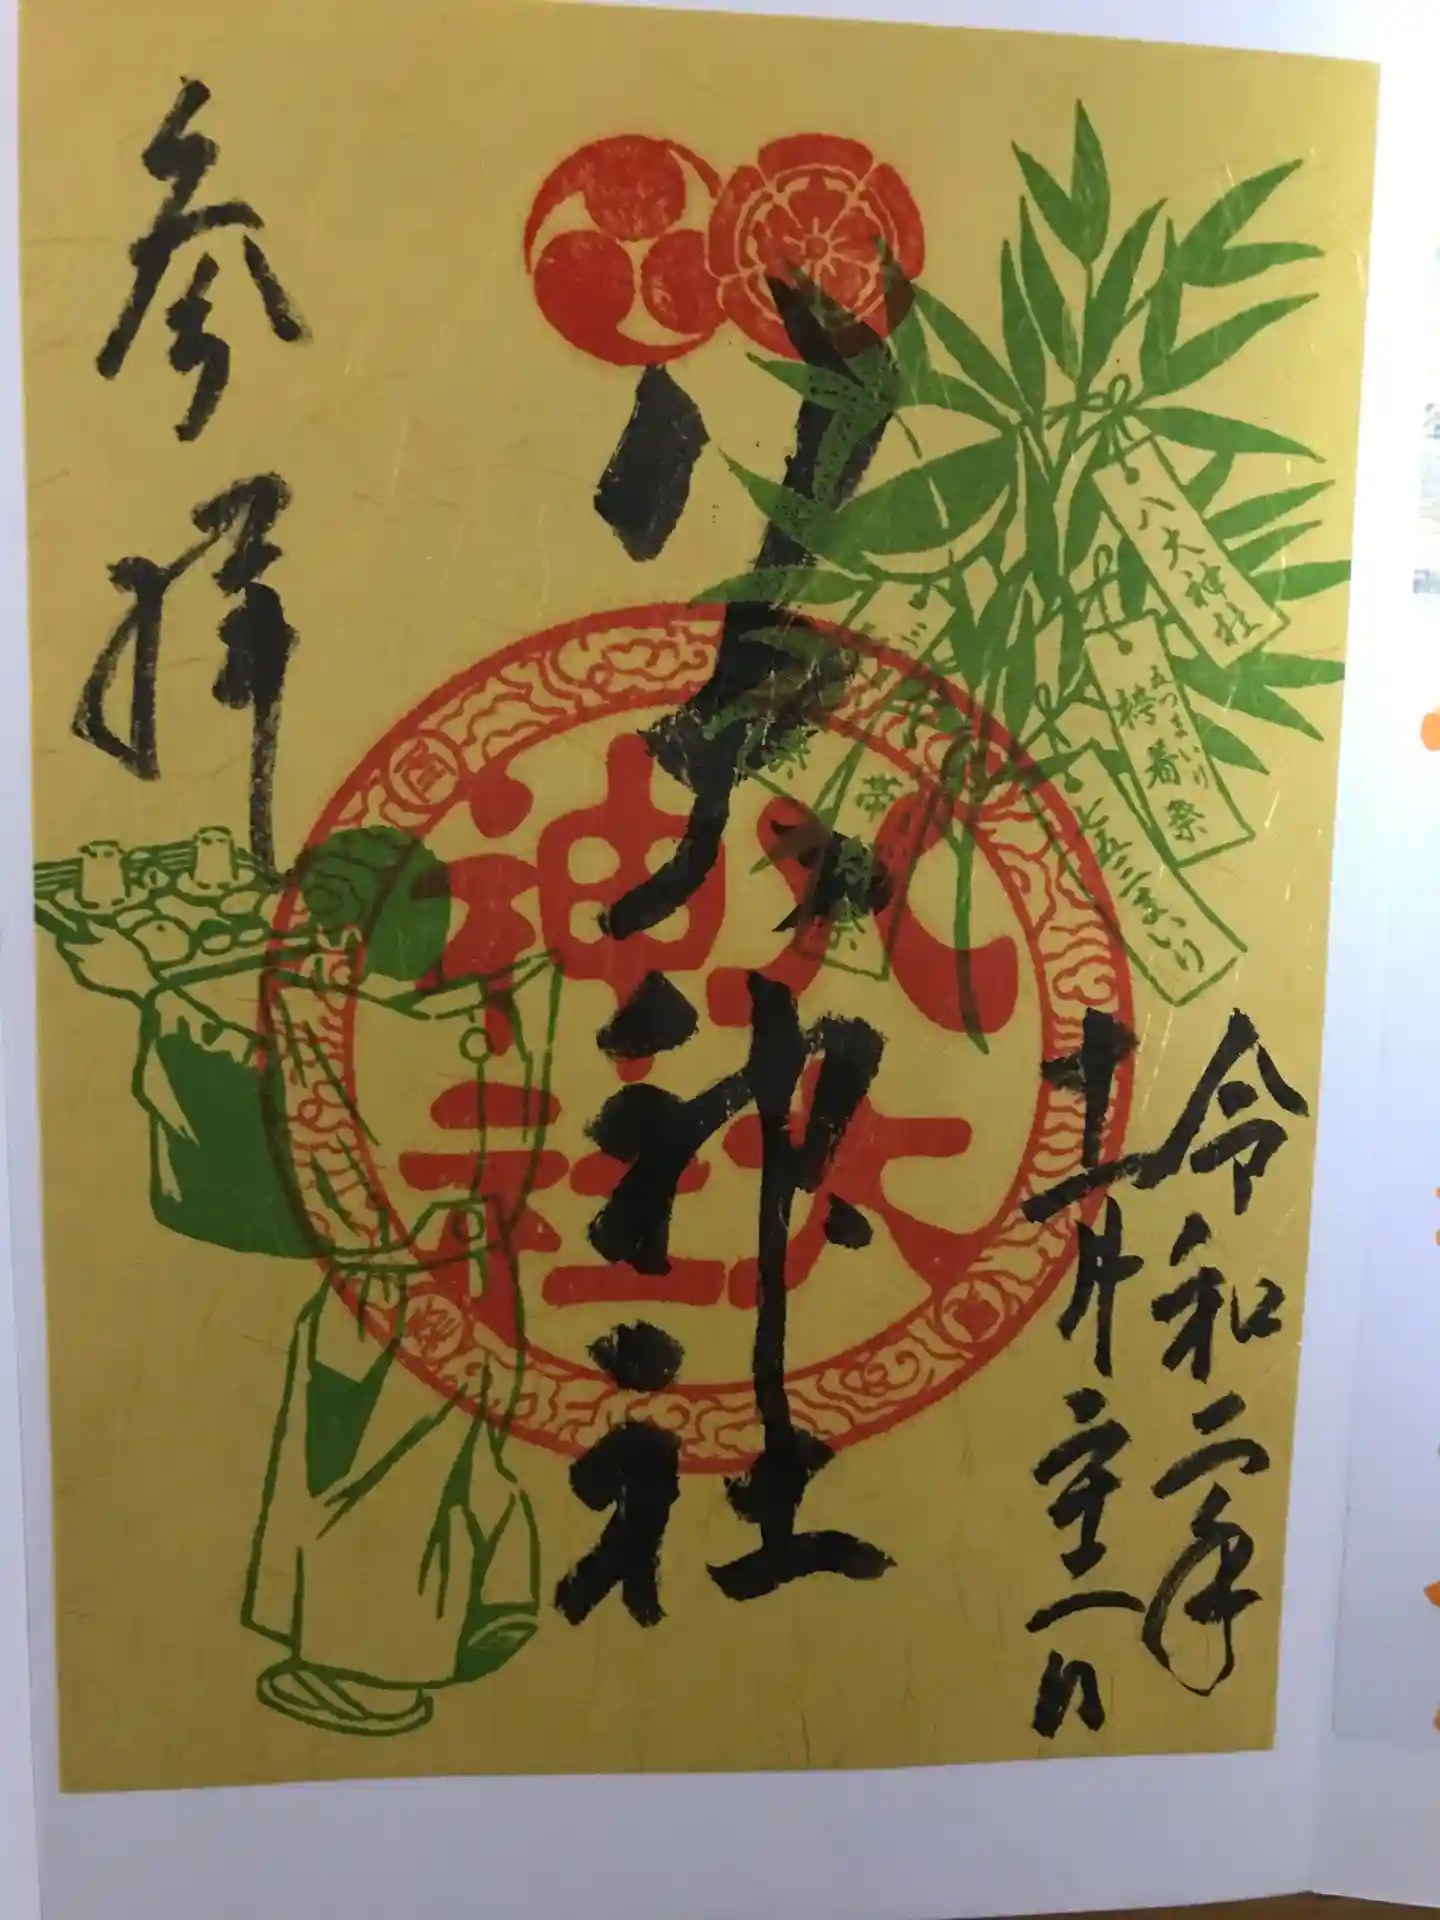 令和二年
十一月二十一日
八大神社
参拝
八大
神社
八大神社
五つまいり
袴着祭
七五三まいり